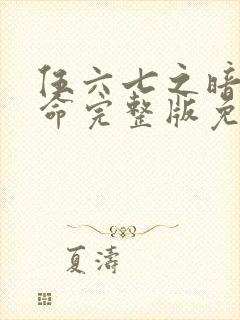 伍六七之暗
命完整版免
夏濤